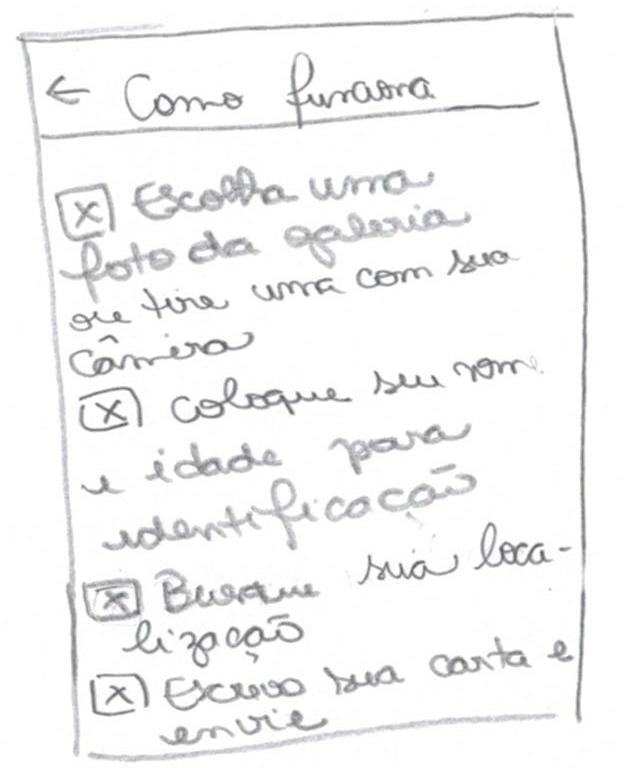 ← Como funciona
[x] Escolha uma
foto da galeria
ou tire uma com sua
câmera
[x] coloque seu nome
e idade para
identificação
[x] Busque sua loca-
lização
[x] Escreva sua carta e
envie